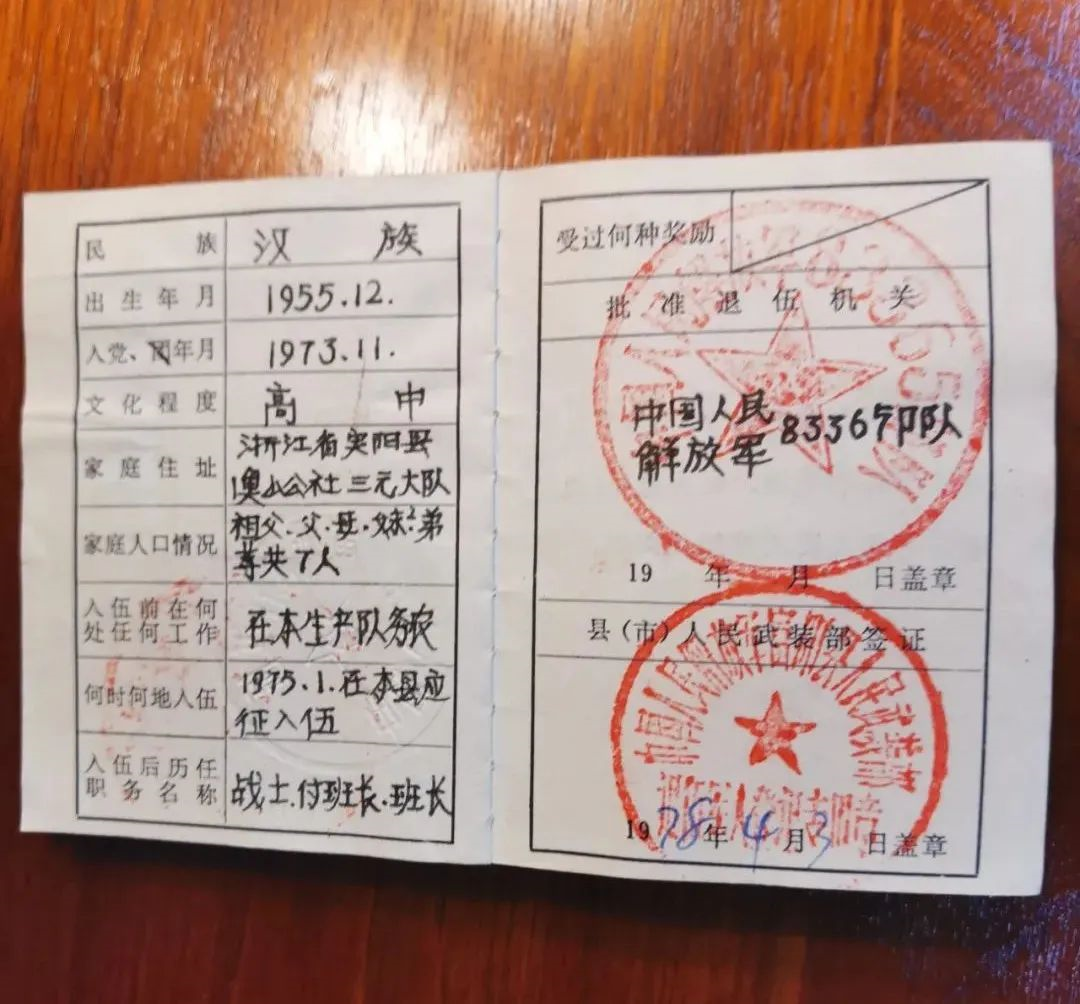 民族 汉族
出生年月 1955.12.
入党、团年月 1973.11.
文化程度 高中
家庭住址 浙江省 阳县
澳 公社三元大队
家庭人口情况 祖父.父.母.妹2.弟
等共7人
入伍前在何
处任何工作 在本生产队务农
何时何地入伍 1975.1.在本县应
征入伍
入伍后历任
职务名称 战士.付班长.班长
受过何种奖励
批准退伍机关
中国人民
解放军 83365部队
19 年 月 日盖章
县(市)人民武装部签证
1978年4月3日盖章